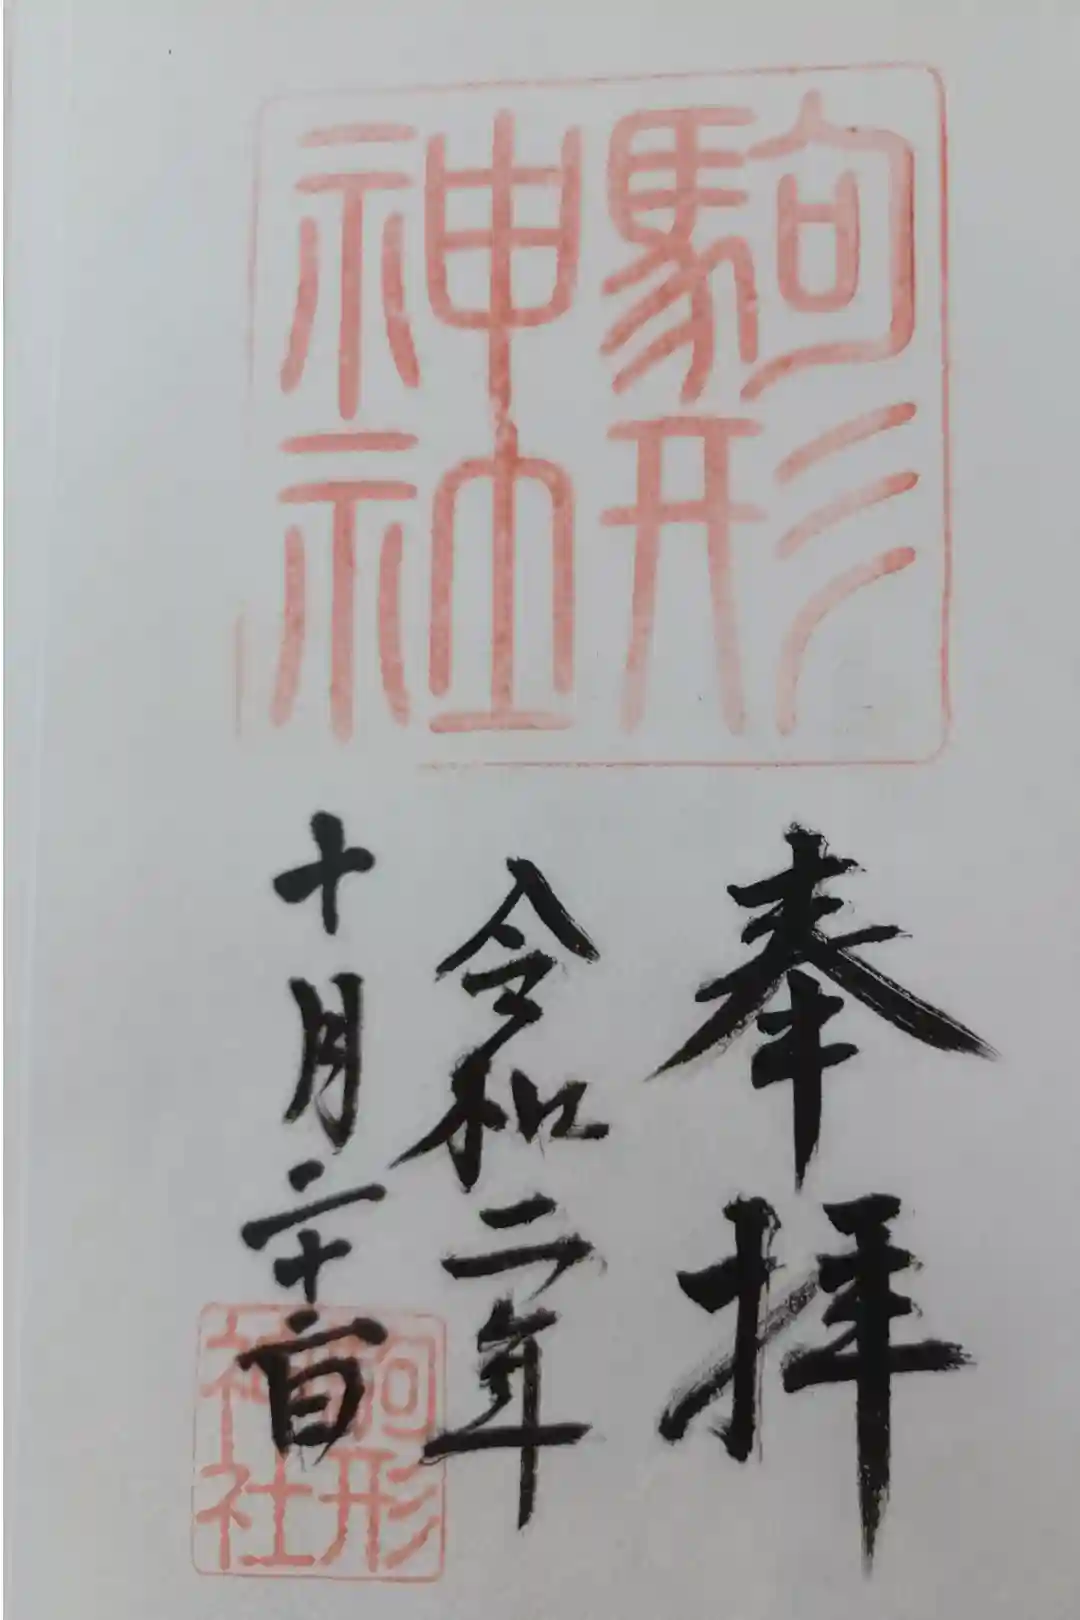 駒形
神社
奉拝
令和二年
十月二十日
駒形
神社